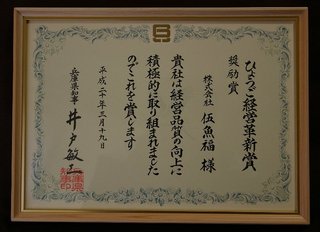 ひょうご経営革新賞
奨励賞
株式会社 伍魚福 様
貴社は経営品質の向上に
積極的に取り組まれました
のでこれを賞します
平成二十年三月十九日
兵庫県知事 井戸敏三
兵庫県
知事印